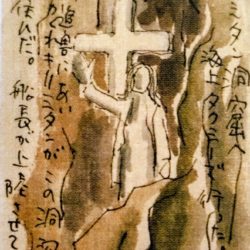 ミタン洞窟へ
海上タクシーで行った。
迫害にあい
かくれキリシタンがこの洞窟
住んだ。
船長が上陸させて